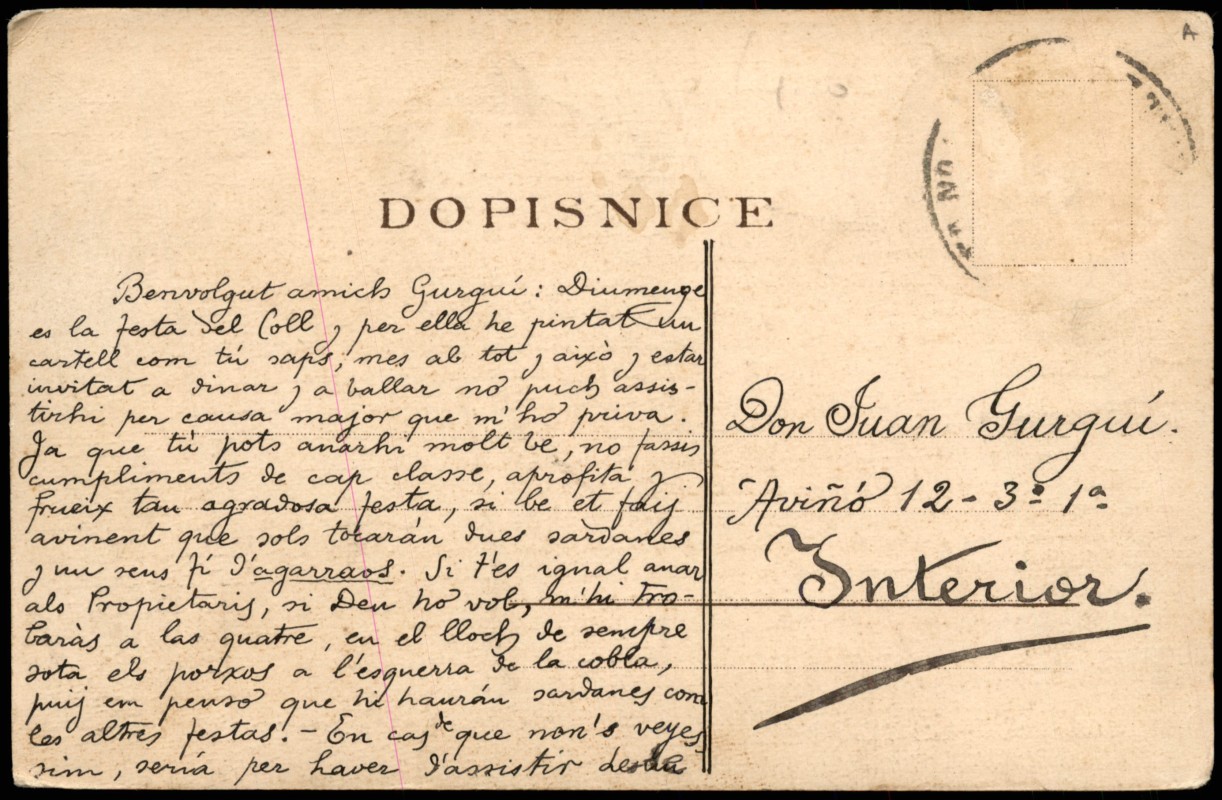 DOPISNICE
Benvolgut amich Gurguí: Diumenge
es la festa del Coll y per ella he pintat un
cartell com tú saps, mes ab tot y això y estar
invitat a dinar y a ballar no puch assis-
tirhi per causa major que m'ho priva.
Ja que tú pots anarhi molt be, no fassis
cumpliments de cap classe, aprofita y
frueix tan agradosa festa, si be et faig
avinent que sols tocarán dues sardanes
y un sens fí d'agarraos. Si t'es igual anar
als Propietaris, si Deu ho vol, m'hi tro-
baràs a las quatre, en el lloch de sempre
sota els porxos a l'esquerra de la cobla,
puig em penso que hi haurán sardanes com
les altres festas. - En cas de que non's veyes-
sim, sería per haver d'assistir
Don Juan Gurguí.
Aviñó 12 - 3º 1ª
Interior.